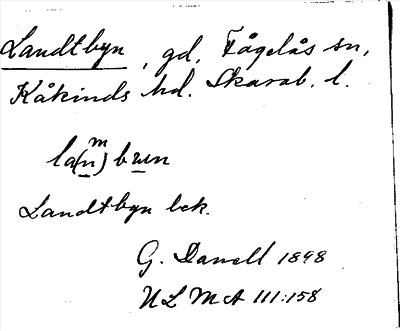 Landtbyn, gd, Fågelås sn,
Kåkinds hd. Skarab. l.
m
la(n) bwn
Landtbyn bek.
G. Danell 1898
ULMA 111:158